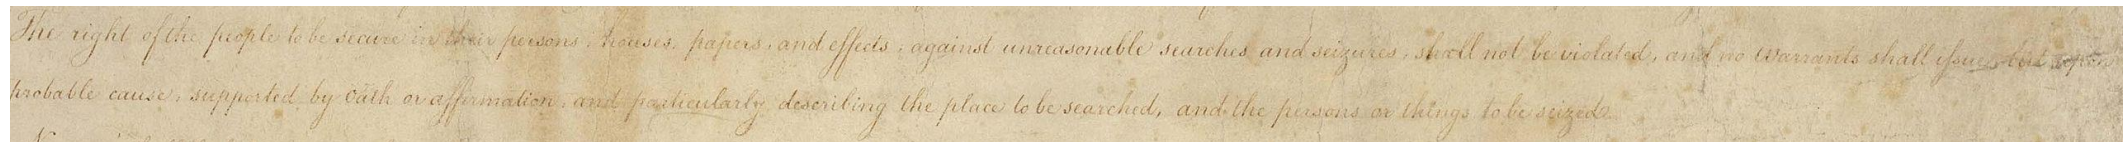 The right of the people to be secure in their persons, houses, papers, and effects, against unreasonable searches and seizures, shall not be violated, and no Warrants shall issue, but upon
probable cause, supported by Oath or affirmation, and particularly describing the place to be searched, and the persons or things to be seized.